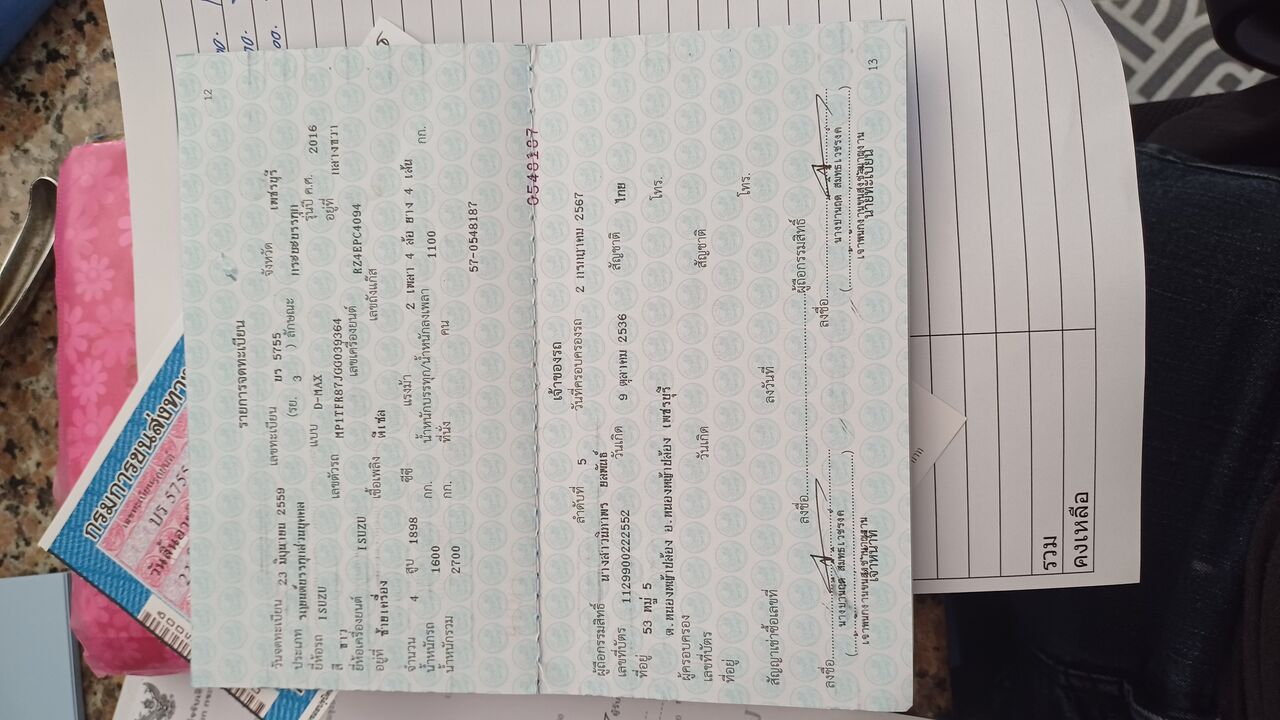 12
รายการจดทะเบียน
วันจดทะเบียน 23 มิถุนายน 2559 เลขทะเบียน บร 5755 จังหวัด เพชรบุรี
ประเภท รถยนต์บรรทุกส่วนบุคคล (รย. 3 ) ลักษณะ กระบะบรรทุก
ยี่ห้อรถ ISUZU แบบ D-MAX รุ่นปี ค.ศ. 2016
สี ขาว เลขตัวรถ MP1TFR87JGG039364 อยู่ที่ กลางขวา
ยี่ห้อเครื่องยนต์ ISUZU เลขเครื่องยนต์ RZ4EPC4094
อยู่ที่ ซ้ายเครื่อง เชื้อเพลิง ดีเซล เลขถังแก๊ส
จำนวน 4 สูบ 1898 ซีซี แรงม้า 2 เพลา 4 ล้อ ยาง 4 เส้น
น้ำหนักรถ 1600 กก. น้ำหนักบรรทุก/น้ำหนักลงเพลา 1100 กก.
น้ำหนักรวม 2700 กก. ที่นั่ง คน
57-0548187
0548187
เจ้าของรถ
ลำดับที่ 5 วันที่ครอบครองรถ 2 กรกฎาคม 2567
ผู้ถือกรรมสิทธิ์ นางสาวนิภาพร
เลขที่บัตร 1129900222552 วันเกิด 9 ตุลาคม 2536 สัญชาติ ไทย
ที่อยู่ 53 หมู่ 5 โทร.
ต.หนองหญ้าปล้อง อ.หนองหญ้าปล้อง เพชรบุรี
ผู้ครอบครอง
เลขที่บัตร วันเกิด สัญชาติ
ที่อยู่ โทร.
สัญญาเช่าซื้อเลขที่ ลงวันที่
ลงชื่อ ผู้ถือกรรมสิทธิ์
ลงชื่อ ลงชื่อ
เจ้าหน้าที่ นายทะเบียน
13
กรมการขนส่งทาง
บร 5755
วันสิ้นอา
รวม
คงเหลือ